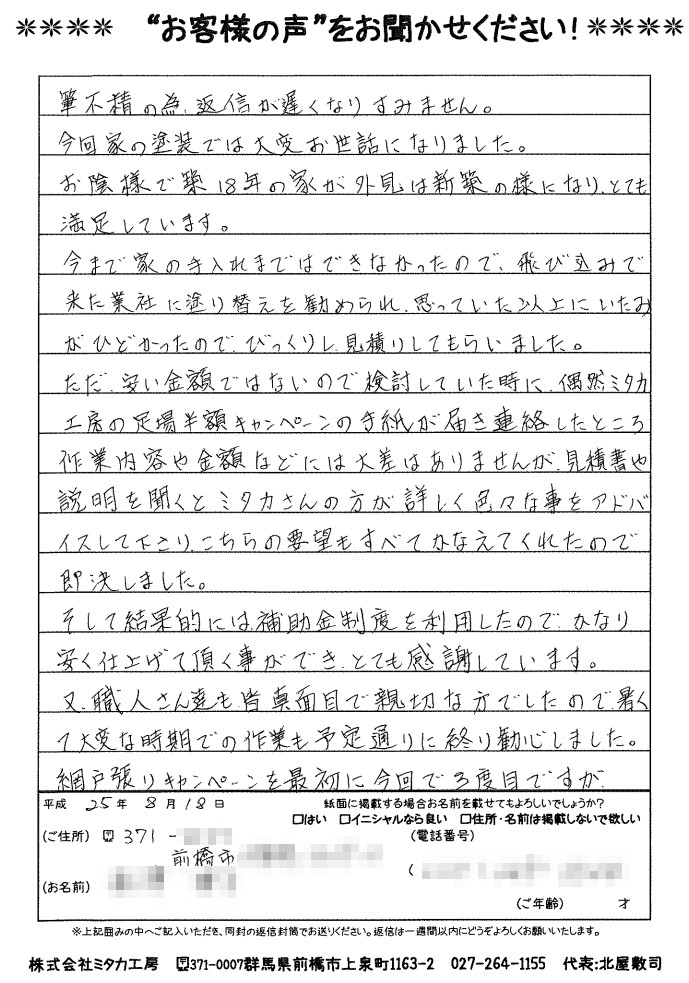 **** “お客様の声”をお聞かせください! ****
筆不精の為、返信が遅くなりすみません。
今回家の塗装では大変お世話になりました。
お陰様で築18年の家が外見は新築の様になり、とても
満足しています。
今まで家の手入れまではできなかったので、飛び込みで
来た業社に塗り替えを勧められ、思っていた以上にいたみ
がひどかったので、びっくりし、見積りしてもらいました。
ただ、安い金額ではないので検討していた時に、偶然ミタカ
工房の足場半額キャンペーンの手紙が届き連絡したところ
作業内容や金額などには大差はありませんが、見積書や
説明を聞くとミタカさんの方が詳しく色々な事をアドバ
イスして下さり、こちらの要望もすべてかなえてくれたので
即決しました。
そして結果的には、補助金制度を利用したので、かなり
安く仕上げて頂く事ができ、とても感謝しています。
又、職人さん達も皆真面目で親切な方でしたので、暑く
て大変な時期での作業も予定通りに終り感心しました。
網戸張りキャンペーンを最初に今回で3度目ですが、
平成 25年 8月 18日 紙面に掲載する場合お名前を載せてもよろしいでしょうか?
□はい □イニシャルなら良い □住所・名前は掲載しないで欲しい
(ご住所) 〒 371 - (電話番号)
前橋市
(お名前) (
(ご年齢) 才
※上記囲みの中へご記入いただき、同封の返信封筒でお送りください。返信は一週間以内にどうぞよろしくお願いいたします。
株式会社ミタカ工房 〒371-0007群馬県前橋市上泉町1163-2 027-264-1155 代表:北屋敷司